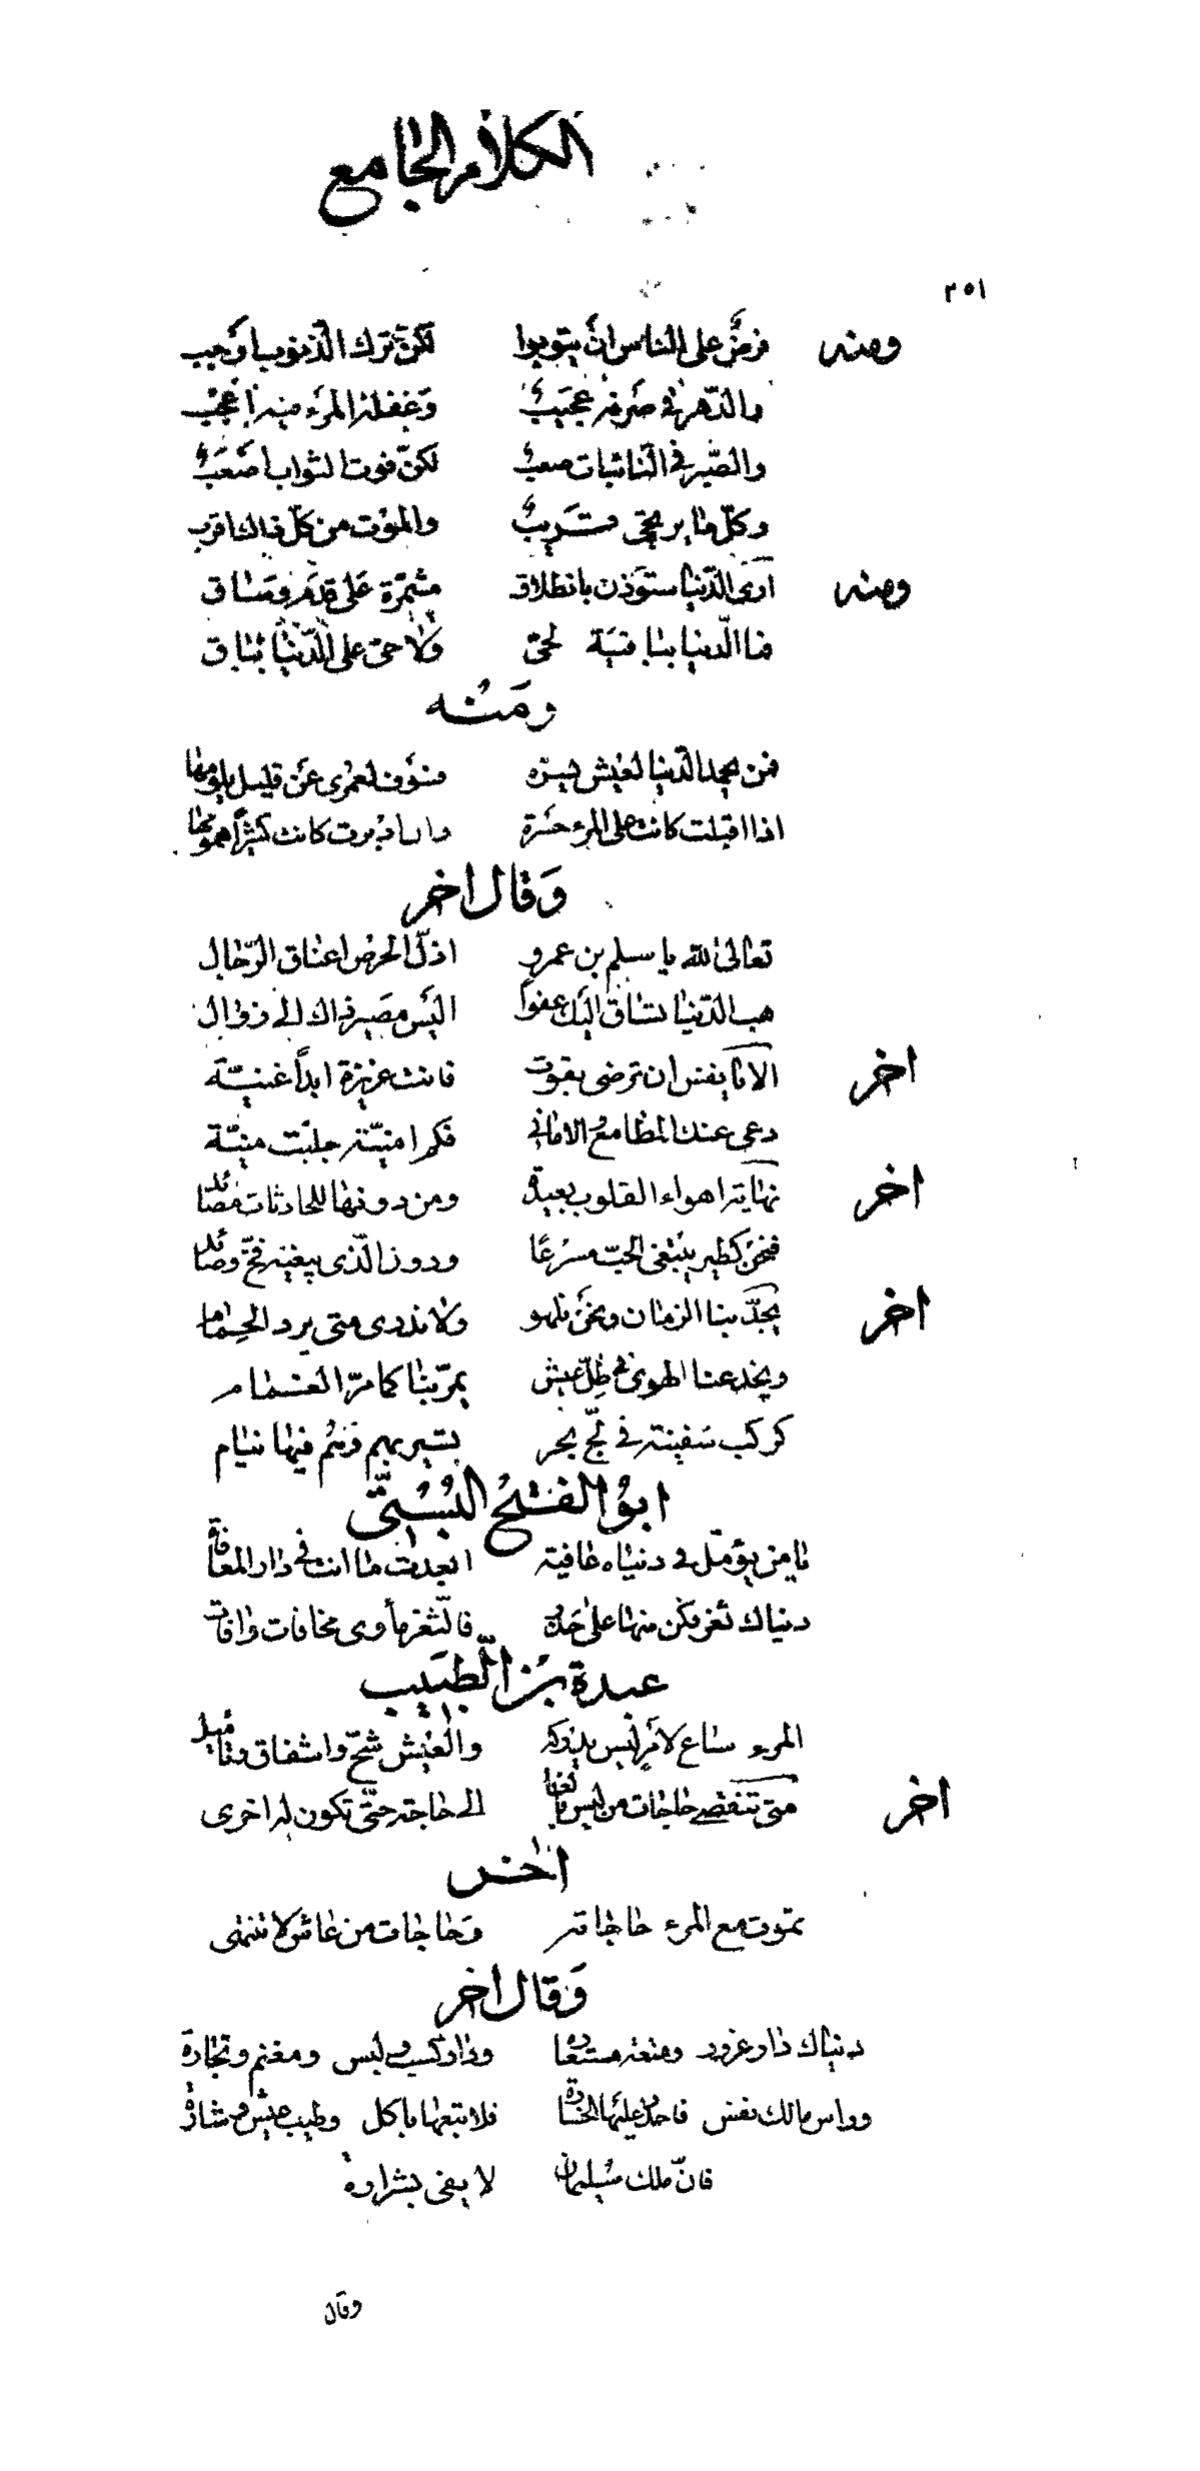 الكلام الجامع
٢٥١
ومنه فرضٌ على الناس ان يتوبوا لكنّ ترك الذنوب اوجب
والدّهر في صرفه عجيبٌ وغفلة المرء منه اعجب
والصّبر في النائبات صعبٌ لكنّ فوت الثواب اصعب
وكلّ ما يرتجى قريبٌ والموت من كلّ ذاك اقرب
ومنه ارى الدّنيا ستؤذن بانطلاق مشمّرة على قدم وساق
فما الدنيا بباقية لحىّ ولا حىّ على الدّنيا بباق
ومنه
فمن يحمد الدّنيا لعيش يسرّه فسوف لعمرى عن قليل يلومها
اذا اقبلت كانت على المرء حسرة وان ادبرت كانت كثيراً همومها
وقال اخر
تعالى الله يا سلم بن عمرو اذلّ الحرص اعناق الرّجال
هب الدّنيا تساق اليك عفواً اليس مصير ذاك الى زوال
اخر الا يا نفس ان ترضى بقوت فانت عزيزة ابداً غنيّة
دعى عنك المطامع والامانى فكم امنيّة جلبت منيّة
اخر نهاية اهواء القلوب بعيدة ومن دونها للحادثات مصائد
فنحن كطير يبتغى الحبّ مسرعًا ودون الّذى يبغيه فخّ وصائد
اخر يجدّ بنا الزمان ونحن نلهو ولا ندرى متى يرد الحماما
ويخدعنا الهوى في ظلّ عيش يمرّ بنا كما مرّ الغمام
كركب سفينة في لجّ بحر يسير بهم وهم فيها نيام
ابو الفتح البستىّ
يا من يؤمّل في دنياه عافية ابعدت ما انت في دار المعافاة
دنياك ثغر فكن منها على حذر فالثغر مأوى مخافات وافات
عبدة بن الطبيب
المرء ساع لامرٍ ليس يدركه والعيش شحّ واشفاق وتأميل
اخر متى تنقضى حاجات من ليس بالغا الى حاجة حتّى تكون له اخرى
اخر
تموت مع المرء حاجاته وحاجات من عاش لا تنتهى
وقال اخر
دنياك دار غرور ومتعة مستعارة ودار كسب ولبس ومغنم وتجارة
وراس مالك نفس فاحذر عليها الخسارة فلا تبعها باكل وطيب عيش وشارة
فانّ ملك سليمان لا يفى بشرارة
وقال